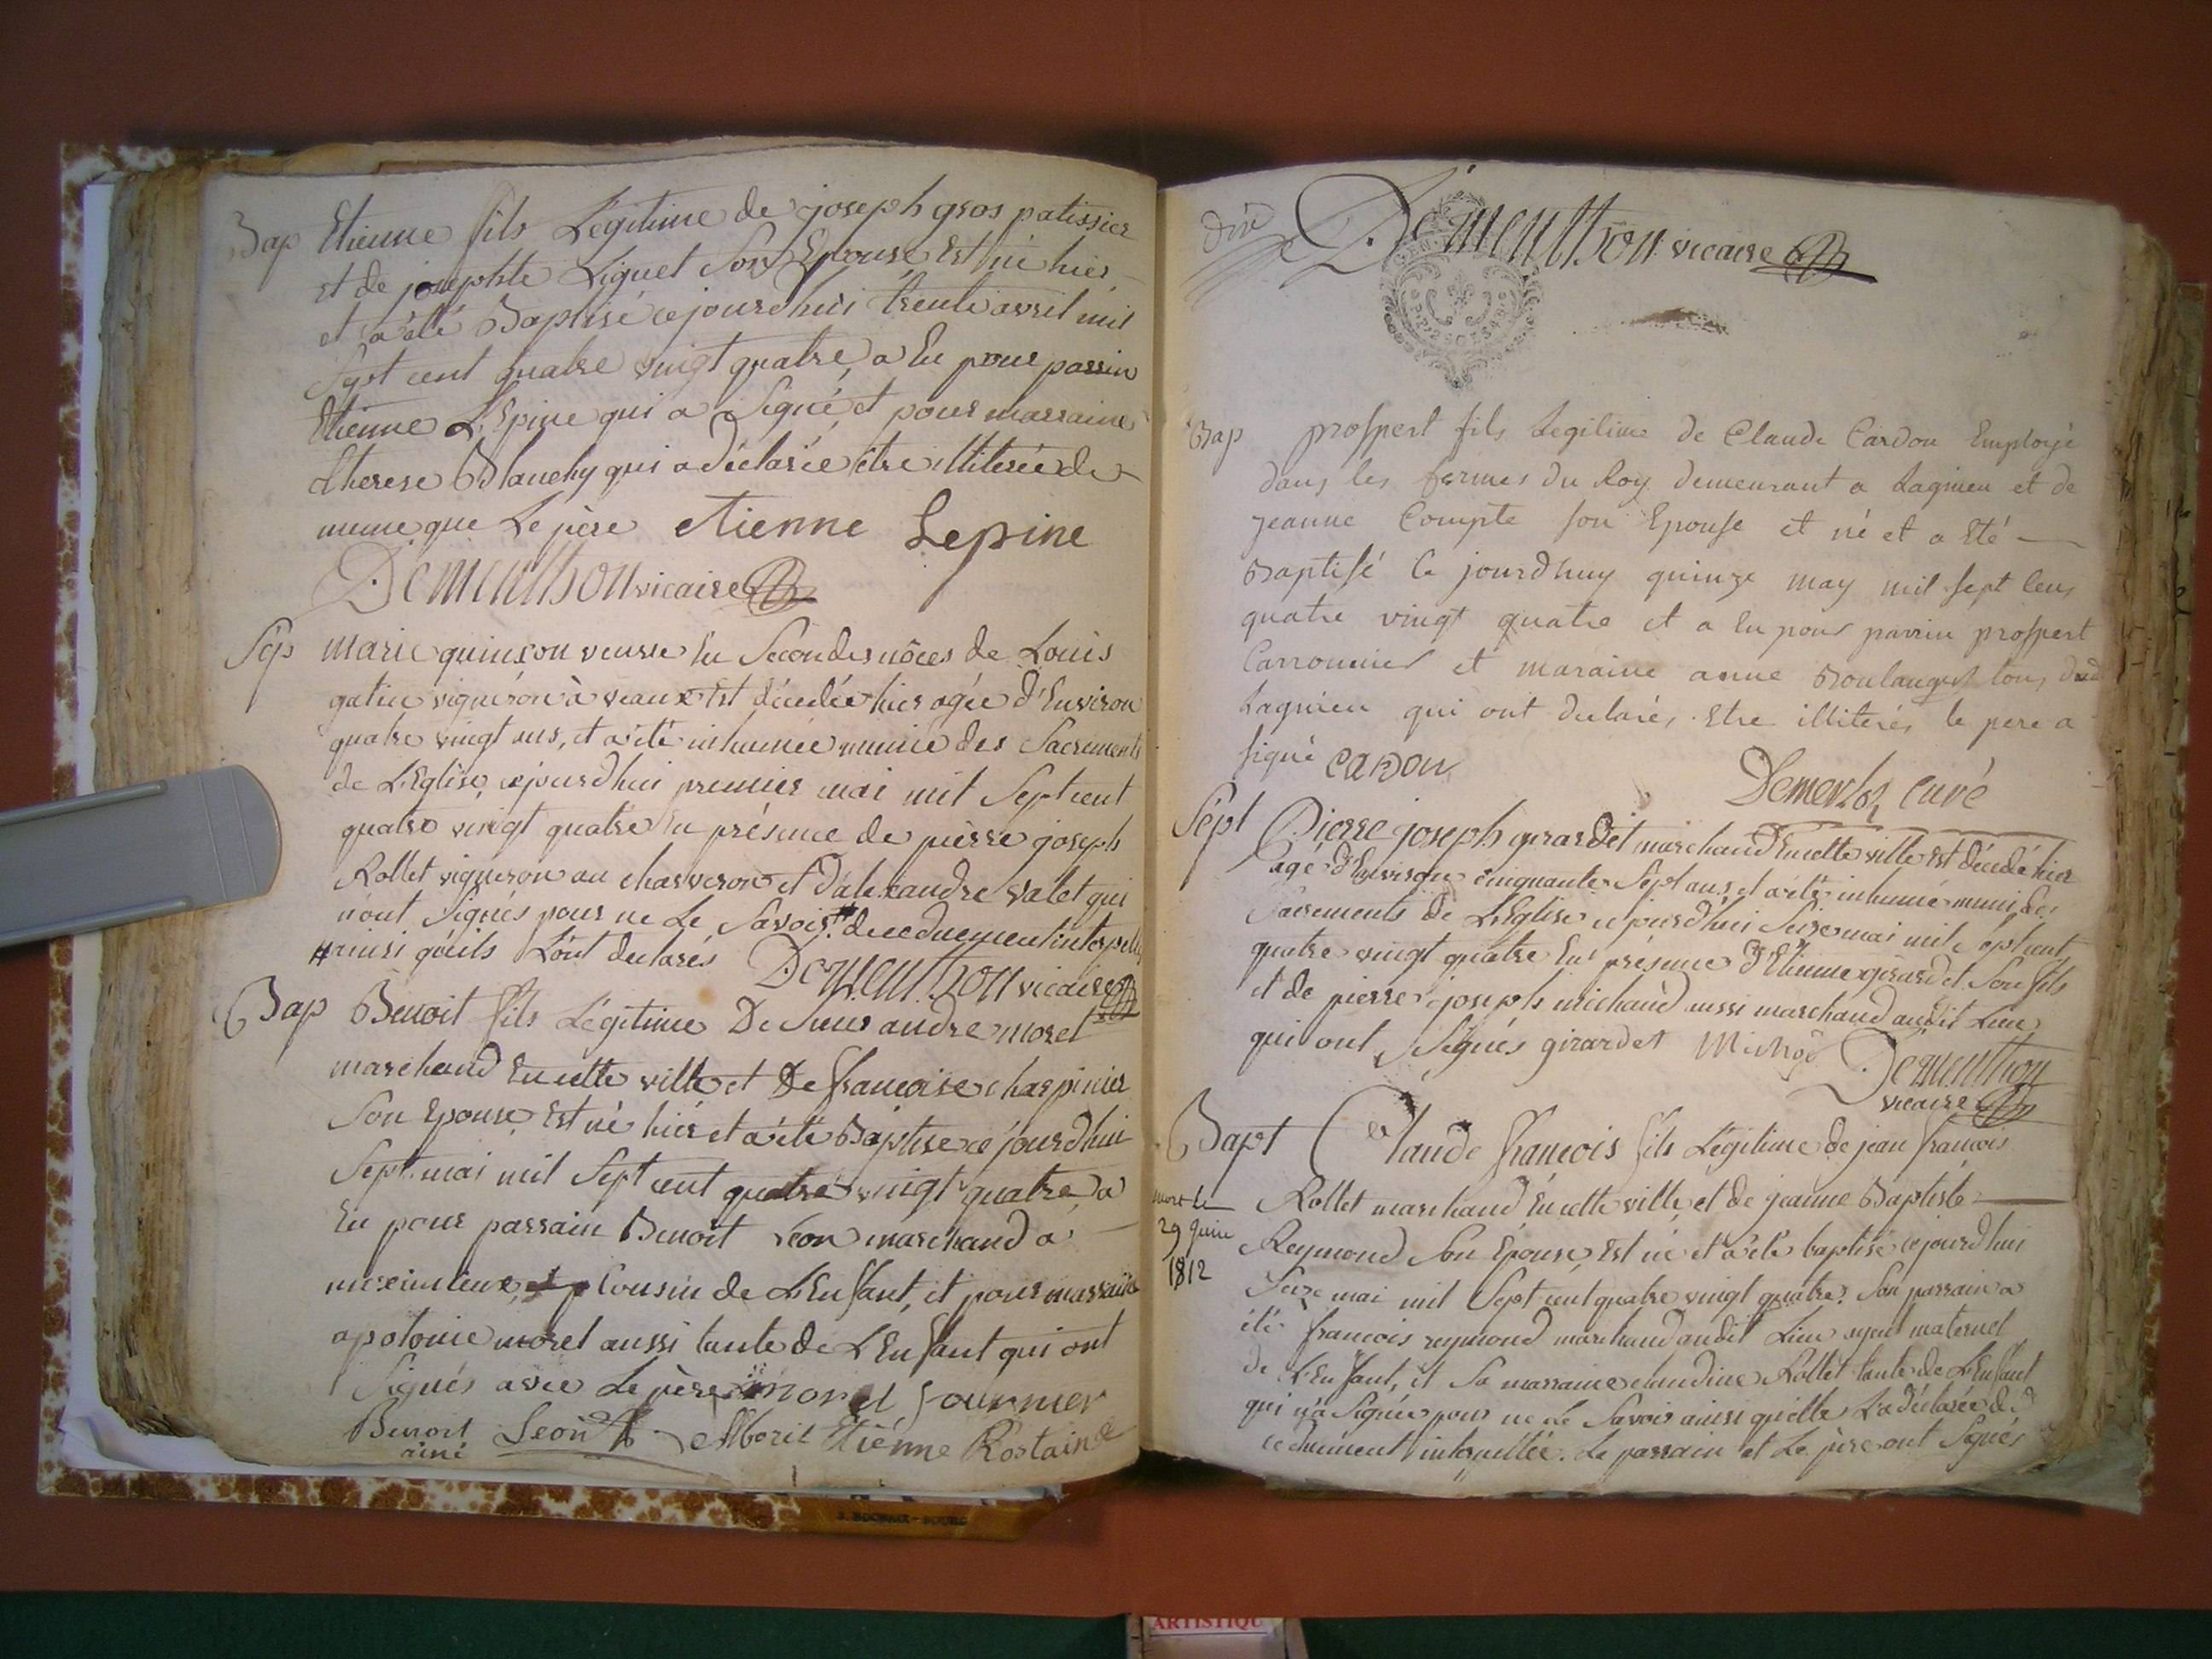 Bap Etienne fils Légitime de joseph gros patissier
et de josephte Liguet Son Epouse Est né hier
et a été Baptisé cejourdhui trente avril mil
Sept cent quatre vingt quatre, a Eu pour parrin
Etienne L'Epine qui a Signé, et pour marraine
therese Blanchy qui a déclarée être illiterée de
meme que Le père etienne Lepine
Dementhon vicaire
Sep marie quinson veuve En Secondes nôces de Louis
gatin vigneron à veaux Est décedée hier agée d'Environ
quatre vingt ans, et a été inhumée munie des Sacrements
de L'Eglise, cejourdhui premier mai mil Sept cent
quatre vingt quatre En présence de pierre joseph
Rollet vigneron au charveron et d'alexandre valet qui
n'ont Signés pour ne Le Savoir # de ce duement interpellés
# ainsi qu'ils L'ont declarés Dementhon vicaire
Bap Benoit fils Légitime De Sieur andre morel
marchand En cette ville et De francoise charpinier
Son Epouse, Est né hier et a été Baptisé ce jourdhui
Sept mai mil Sept cent quatre vingt quatre, a
Eu pour parrain Benoit Léon marchand a
meximieux, Cousin de L'Enfant, et pour marraine
apolonie morel aussi tante de L'Enfant qui ont
Signés avec Le père morel fournier
Benoit Leon Etiénne Rostaind
ainé
Dementhon vicaire
Bap prospert fils Legitime de Claude Cardon Employé
dans les fermes du Roy demeurant a Lagnieu et de
jeanne Compte son Epouse et né et a Eté
Baptisé Ce jourdhuy quinze may mil sept Cens
quatre vingt quatre et a Eu pour parrin prospert
Carronnier et maraine anne Boulanger tous dud
Lagnieu qui ont declarés Etre illiterés le pere a
signé CARDON
curé
Sept Pierre joseph girardet marchand En cette ville Est décedé hier
agé d'Environ cinquante Sept ans, et a été inhumé muni des
Sacrements de L'Eglise cejourdhui Seize mai mil Sept cent
quatre vingt quatre En présence d'Etienne girardet Son fils
et de pierre joseph michaud aussi marchand audit Lieu
qui ont Signés girardet
Dementhon
vicaire
Bapt Claude francois fils Légitime de jean francois
mort le Rollet marchand En cette ville, et de jeanne Baptiste
29 juin Reymond Son Epouse, Est né et a été baptisé cejourdhui
1812 Seize mai mil Sept cent quatre vingt quatre. Son parrain a
été francois reymond marchand audit Lieu ayeul maternel
de L'Enfant, et Sa marraine claudine Rollet tante de L'Enfant
qui n'a Signée pour ne Le Savoir ainsi qu'elle L'a déclarée de
ce duement interpellée. Le parrain et Le père ont Signés